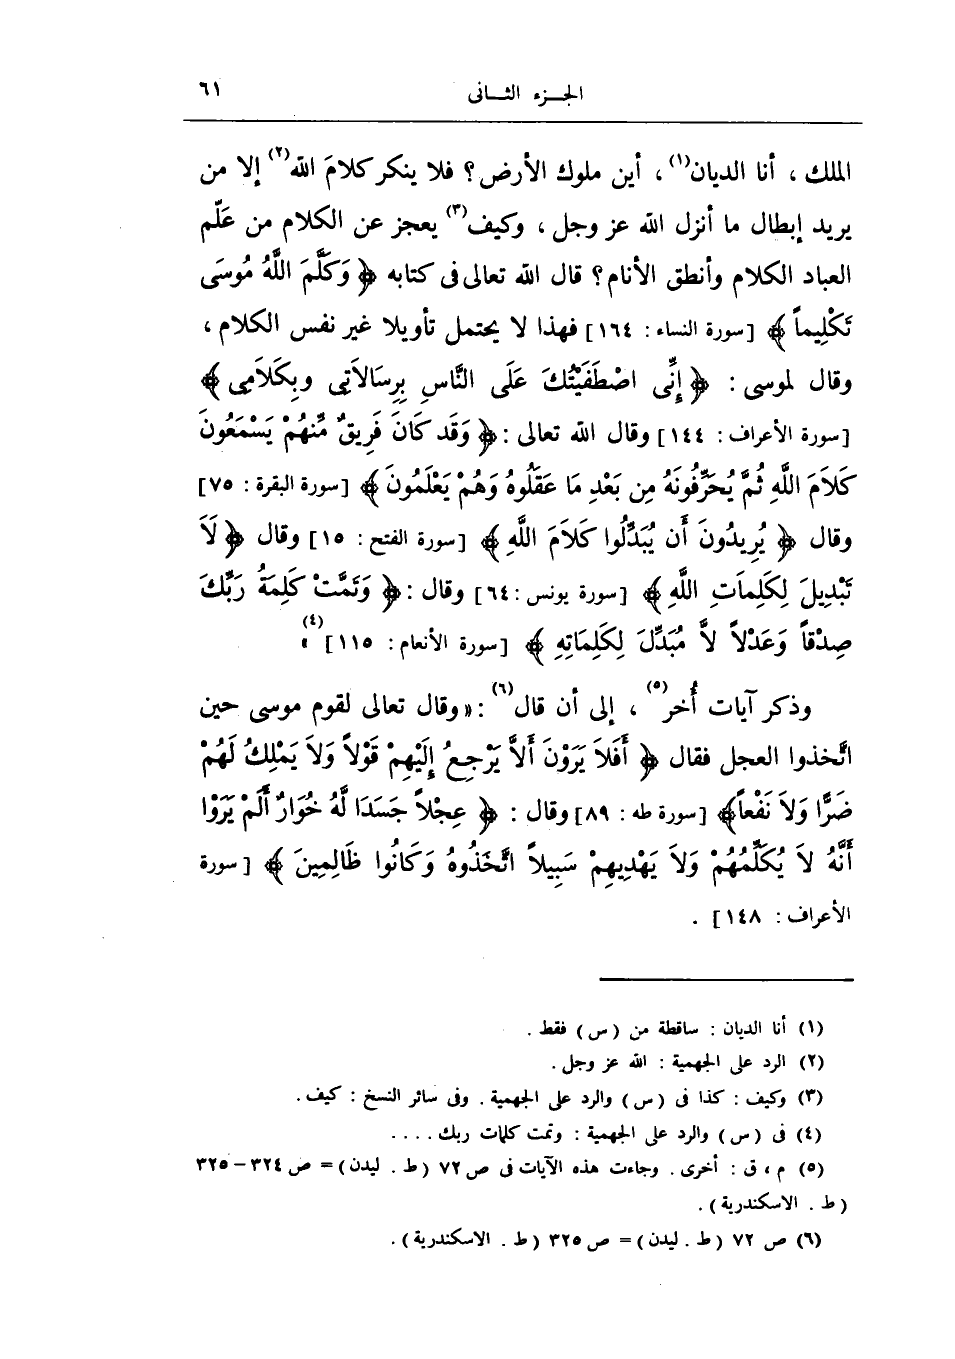 الجزء الثانى ٦١
الملك ، أنا الديان(١) ، أين ملوك الأرض ؟ فلا ينكر كلامَ الله(٢) إلا من
يريد إبطال ما أنزل الله عز وجل ، وكيف(٣) يعجز عن الكلام من عَلَّم
العباد الكلام وأنطق الأنام ؟ قال الله تعالى فى كتابه ﴿ وَكَلَّمَ اللَّهُ مُوسَى
تَكْلِيماً ﴾ [سورة النساء : ١٦٤] فهذا لا يحتمل تأويلا غير نفس الكلام ،
وقال لموسى : ﴿ إِنِّى اصْطَفَيْتُكَ عَلَى النَّاسِ بِرِسَالاَتِى وبِكَلاَمِى ﴾
[سورة الأعراف : ١٤٤] وقال الله تعالى : ﴿ وَقَد كَانَ فَرِيقٌ مِّنهُمْ يَسْمَعُونَ
كَلاَمَ اللَّهِ ثُمَّ يُحَرِّفُونَهُ مِن بَعْدِ مَا عَقَلُوهُ وَهُمْ يَعْلَمُونَ ﴾ [سورة البقرة : ٧٥]
وقال ﴿ يُرِيدُونَ أَن يُبَدِّلُوا كَلاَمَ اللَّهِ ﴾ [سورة الفتح : ١٥] وقال ﴿ لَا
تَبْدِيلَ لِكَلِمَاتِ اللَّهِ ﴾ [سورة يونس : ٦٤] وقال : ﴿ وَتَمَّتْ كَلِمَةُ رَبِّكَ
صِدْقاً وَعَدْلاً لاَّ مُبَدِّلَ لِكَلِمَاتِهِ ﴾ [سورة الأنعام : ١١٥](٤) »
وذكر آيات أُخر(٥) ، إلى أن قال(٦) : « وقال تعالى لقوم موسى حين
اتَّخذوا العجل فقال ﴿ أَفَلاَ يَرَوْنَ أَلاَّ يَرْجِعُ إِلَيْهِمْ قَوْلاً وَلاَ يَمْلِكُ لَهُمْ
ضَرًّا وَلاَ نَفْعاً ﴾ [سورة طه : ٨٩] وقال : ﴿ عِجْلاً جَسَدَا لَّهُ خُوَارٌ أَلَمْ يَرَوْا
أَنَّهُ لاَ يُكَلِّمُهُمْ وَلاَ يَهْدِيهِمْ سَبِيلاً اتَّخَذُوهُ وَكَانُوا ظَالِمِينَ ﴾ [سورة
الأعراف : ١٤٨] .
(١) أنا الديان : ساقطة من (س) فقط .
(٢) الرد على الجهمية : الله عز وجل .
(٣) وكيف : كذا فى (س) والرد على الجهمية . وفى سائر النسخ : كيف .
(٤) فى (س) والرد على الجهمية : وتمت كلمات ربك . . . .
(٥) م ، ق : أخرى . وجاءت هذه الآيات فى ص ٧٢ (ط . ليدن) = ص ٣٢٤ – ٣٢٥
(ط . الاسكندرية) .
(٦) ص ٧٢ (ط . ليدن) = ص ٣٢٥ (ط . الاسكندرية) .